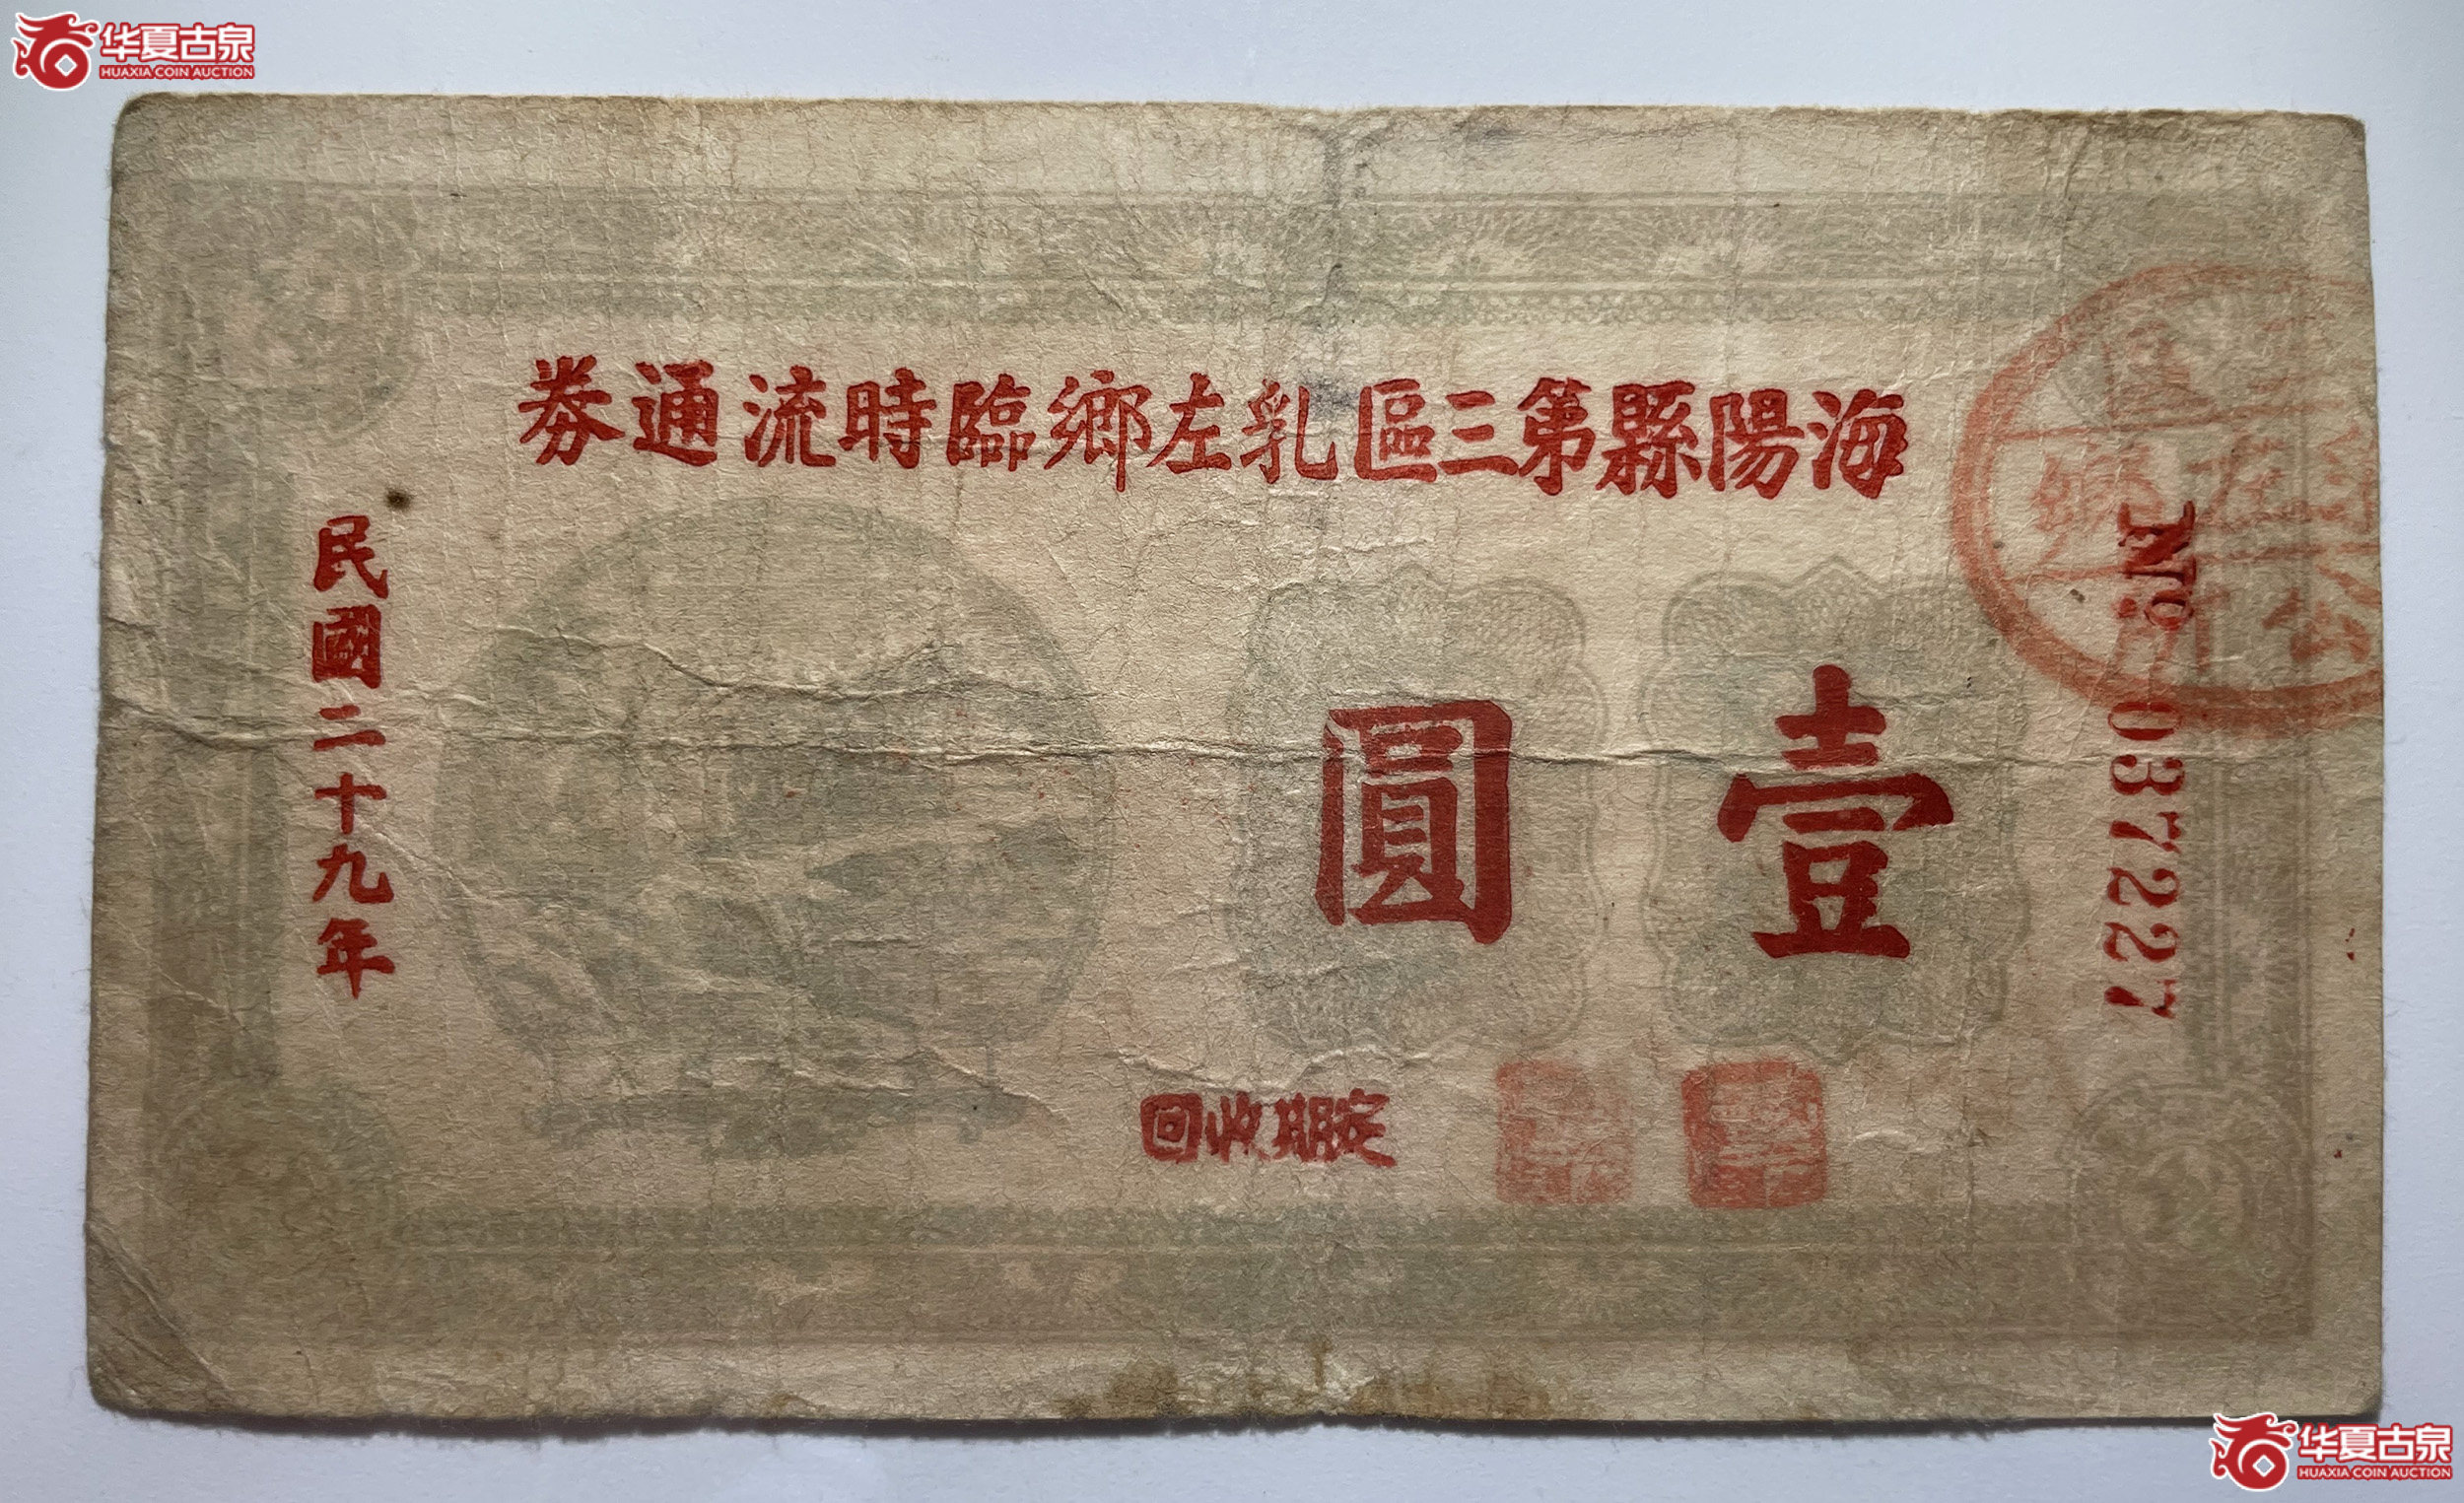 华夏古泉
HUAXIA COIN AUCTION
海陽縣第三區乳左鄉臨時流通券
民國二十九年
壹圓
No. 037227
定期收回
鄉左乳
公
华夏古泉
HUAXIA COIN AUCTION